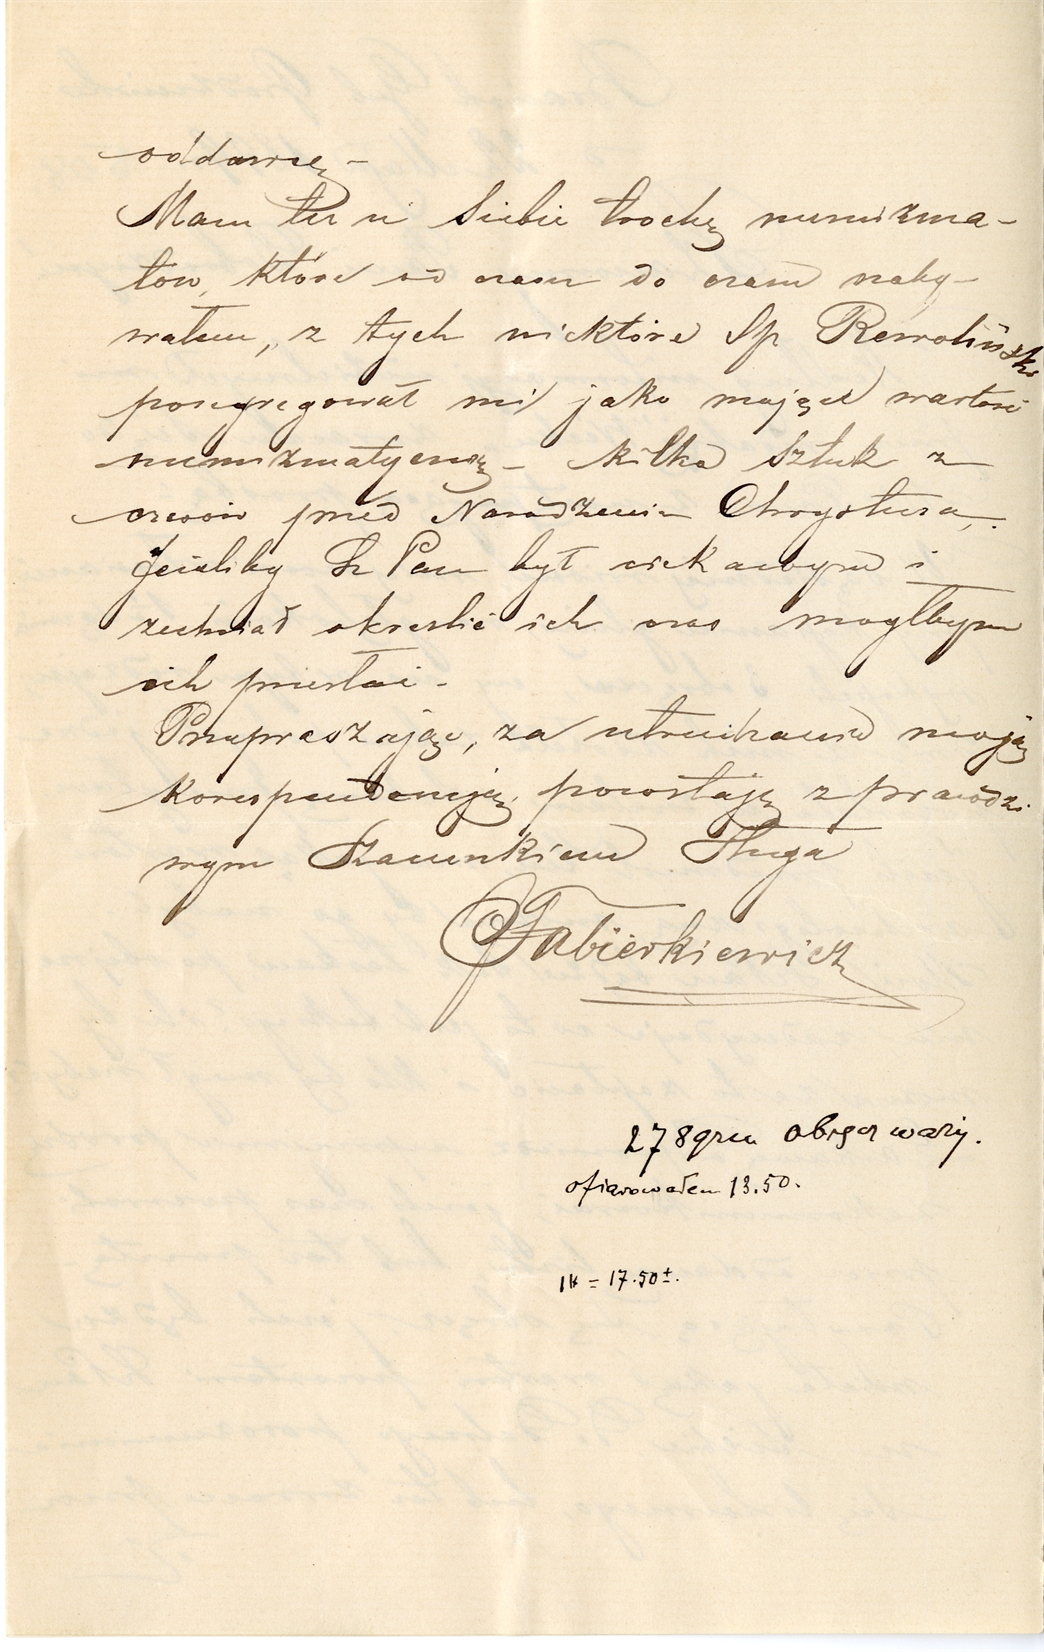 oddawcę –
Mam tu u Siebie trochę numizma-
tów, które od czasu do czasu naby-
wałem, z tych niektóre Sp Rewoliński
posegregował mi jako mające wartość
numizmatyczną – kilka sztuk z
czasów przed Narodzenia Chrystusa,
Jeżeliby Sz Pan był ciekawym i
zechciał określić ich czas mógłbym
ich przesłać –
Przepraszając, za utrudzanie moją
Korespondencyą, pozostaję z prawdzi
wym Szacunkiem Sługa
Fabierkiewicz
278 grm obrącz waży.
ofiarowałem 13.50.
= 17.50